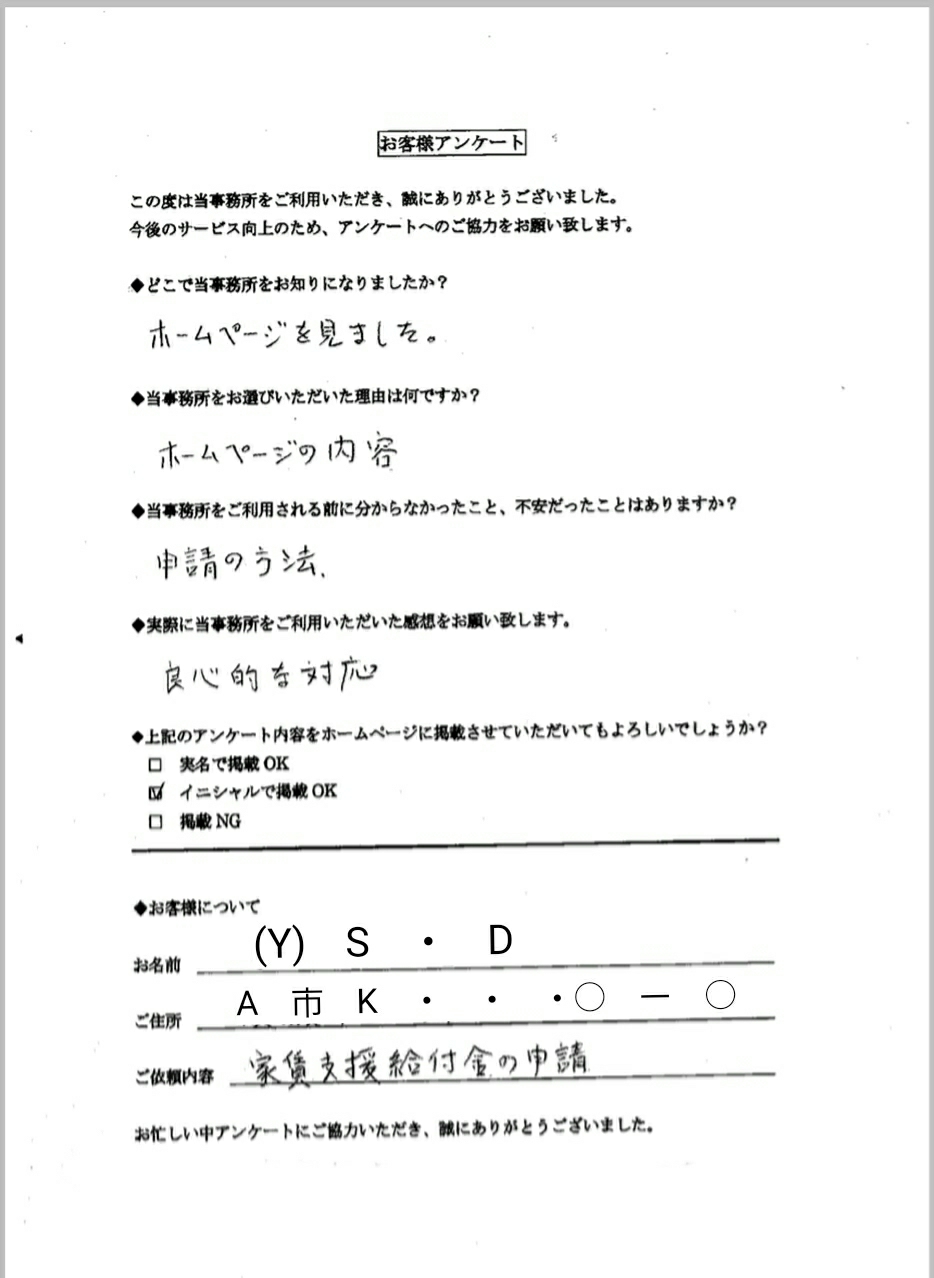 お客様アンケート
この度は当事務所をご利用いただき、誠にありがとうございました。
今後のサービス向上のため、アンケートへのご協力をお願い致します。
◆どこで当事務所をお知りになりましたか？
ホームページを見ました。
◆当事務所をお選びいただいた理由は何ですか？
ホームページの内容
◆当事務所をご利用される前に分からなかったこと、不安だったことはありますか？
申請の方法、
◆実際に当事務所をご利用いただいた感想をお願い致します。
良心的な対応
◆上記のアンケート内容をホームページに掲載させていただいてもよろしいでしょうか？
□ 実名で掲載 OK
☑ イニシャルで掲載 OK
□ 掲載 NG
◆お客様について
お名前 (Y) S ・ D
ご住所 A 市 K ・ ・ ・〇 ー 〇
ご依頼内容 家賃支援給付金の申請
お忙しい中アンケートにご協力いただき、誠にありがとうございました。